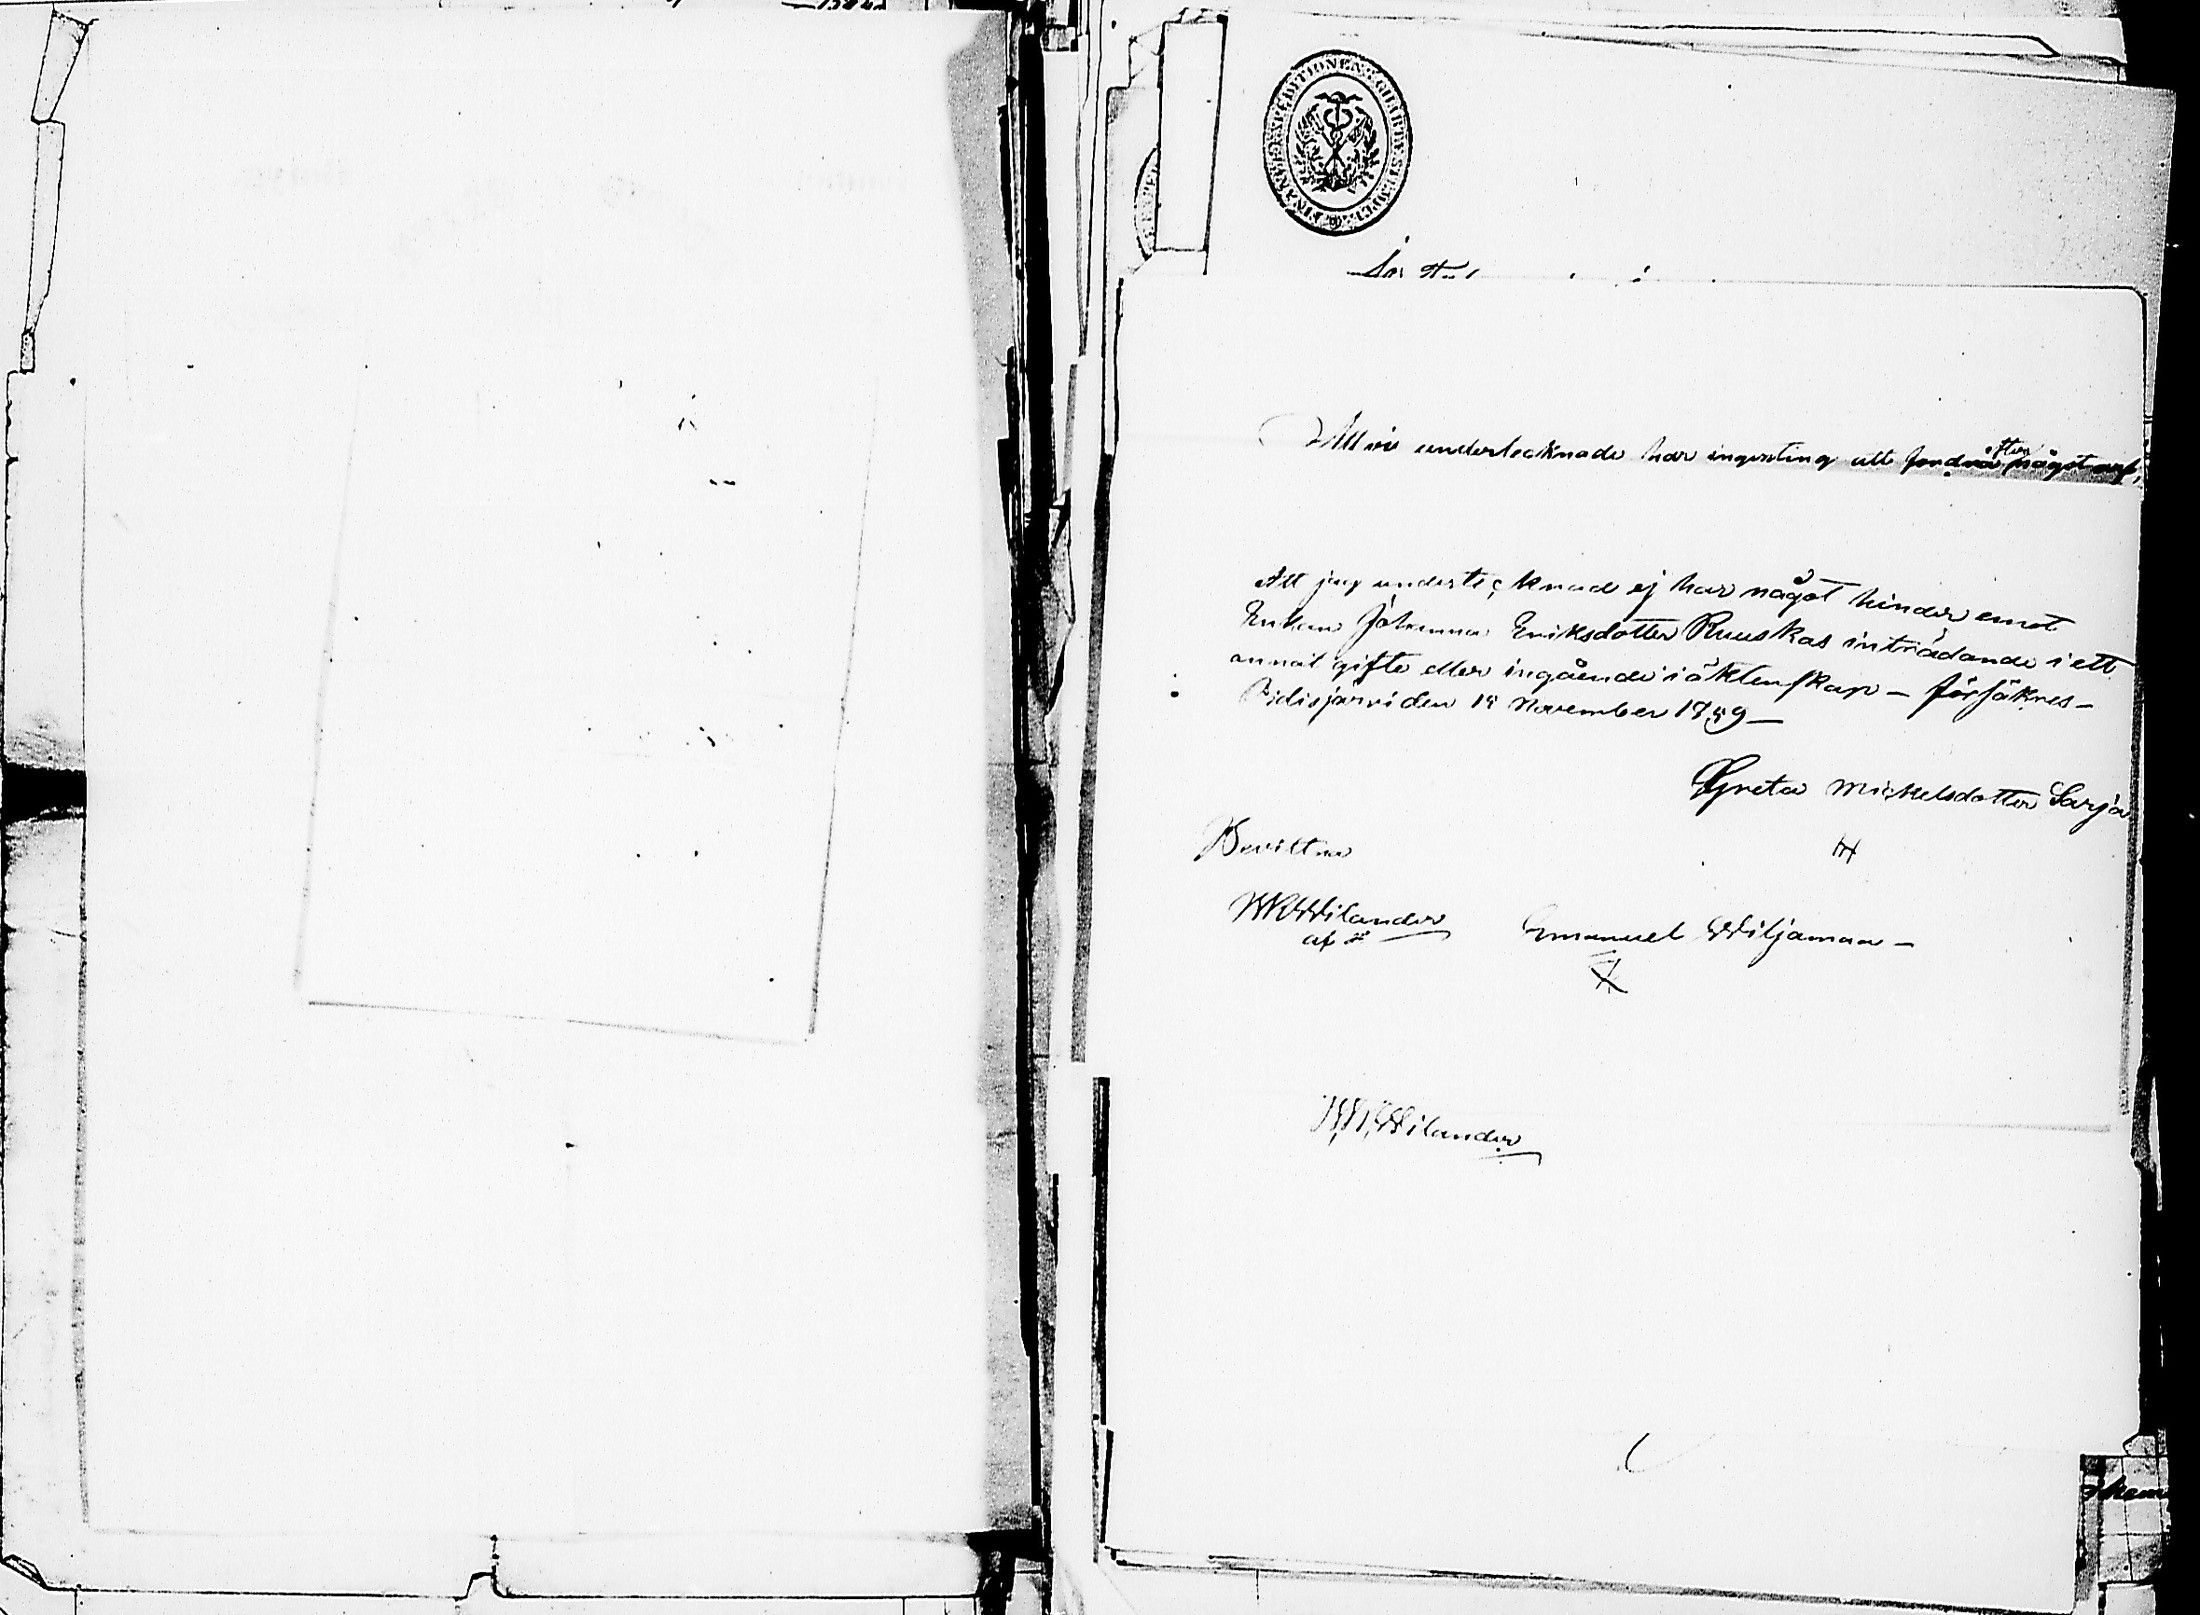 Att vi undertecknade har ingenting att fordra efter något arf,
Att jag undertecknad ej har något hinder emot
Enkan Johanna Eriksdotter Ruuskas inträdande i ett
annat gifte eller ingående i äktenskap – försäkres –
Pidisjärvi den 15 November 1859 –
Greta Mickelsdotter Sarja
Bevittna
W Wilander
Emanuel Wiljamaa –
W. Wilander